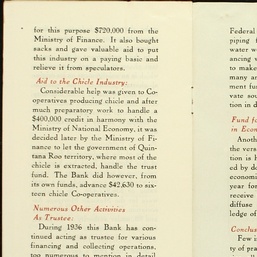 for this purpose $720,000 from the
Ministry of Finance. It also bought
sacks and gave valuable aid to put
this industry on a paying basic and
relieve it from speculators.
Aid to the Chicle Industry:
Considerable help was given to Co-
operatives producing chicle and after
much preparatory work to handle a
$400,000 credit in harmony with the
Ministry of National Economy, it was
decided later by the Ministry of Fi-
nance to let the government of Quin-
tana Roo territory, where most of the
chicle is extracted, handle the trust
fund. The Bank did however, from
its own funds, advance $42.630 to six-
teen chicle Co-operatives.
Numerous Other Activities
As Trustee:
During 1936 this Bank has con-
tinued acting as trustee for various
financing and collecting operations,
too numerous to mention in detail
Federal
piping
water w
ancing
to make
many an
ment fun
vate sou
tion in d
Fund fo
in Econo
Anoth
the vers
tion is h
ed by do
economi
year for
receive
diffuse
ledge of
Conclus
Few i
ty of pra